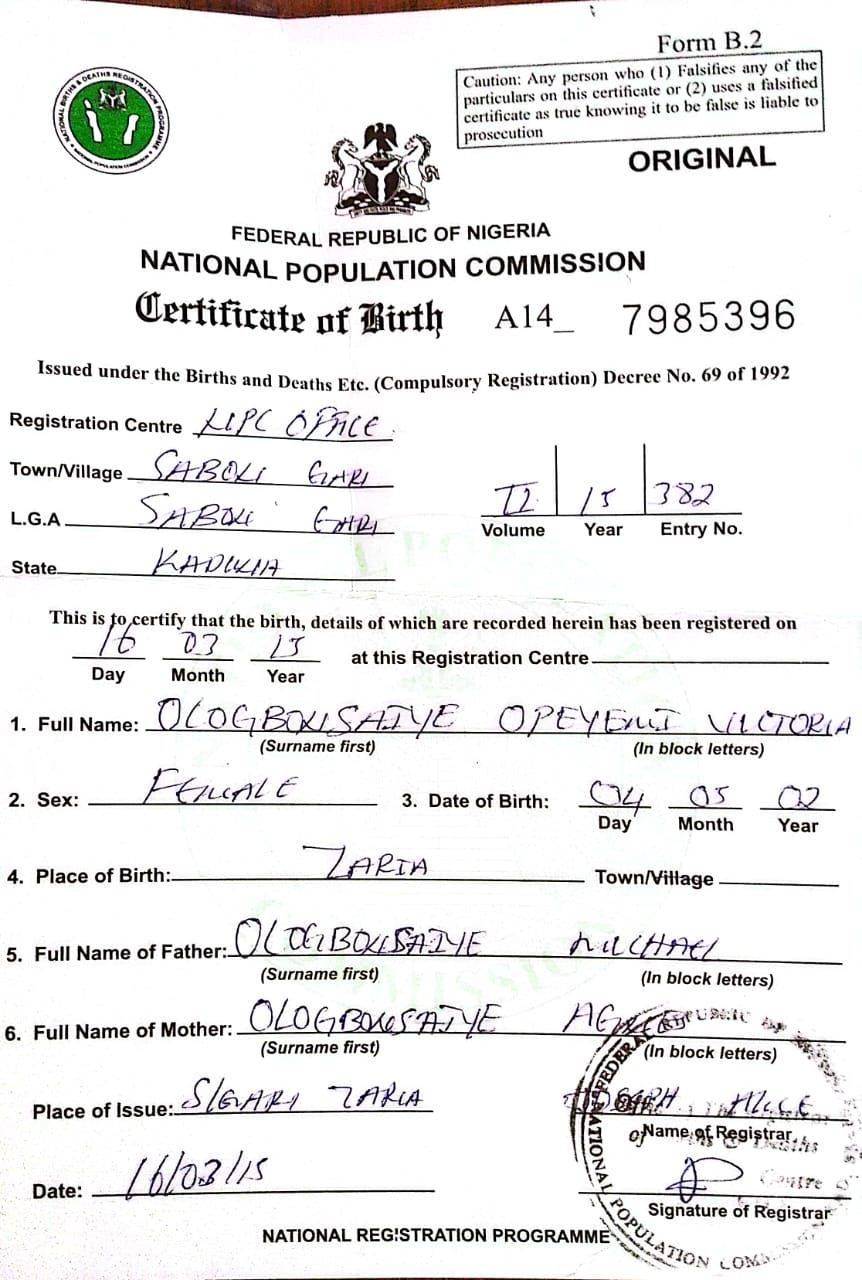 Form B.2
Caution: Any person who (1) Falsifies any of the
particulars on this certificate or (2) uses a falsified
certificate as true knowing it to be false is liable to
prosecution
ORIGINAL
NATIONAL BIRTHS & DEATHS REGISTRATION PROGRAMME
NATIONAL POPULATION COMMISSION
FEDERAL REPUBLIC OF NIGERIA
NATIONAL POPULATION COMMISSION
Certificate of Birth A14_ 7985396
Issued under the Births and Deaths Etc. (Compulsory Registration) Decree No. 69 of 1992
Registration Centre NPC OFFICE
Town/Village SABON GARI
L.G.A SABON GARI
State KADUNA
15 382
Volume Year Entry No.
This is to certify that the birth, details of which are recorded herein has been registered on
16 03 15 at this Registration Centre
Day Month Year
1. Full Name: OLOGBONSAIYE OPEYEMI VICTORIA
(Surname first) (In block letters)
2. Sex: FEMALE 3. Date of Birth: 04 05 02
Day Month Year
4. Place of Birth: ZARIA Town/Village
5. Full Name of Father: OLOGBONSAIYE MICHAEL
(Surname first) (In block letters)
6. Full Name of Mother: OLOGBONSAIYE
(Surname first) (In block letters)
Place of Issue: S/GARI ZARIA JOSEPH ALICE
Name of Registrar
Date: 16/03/15
Signature of Registrar
NATIONAL REGISTRATION PROGRAMME
NATIONAL POPULATION COMM